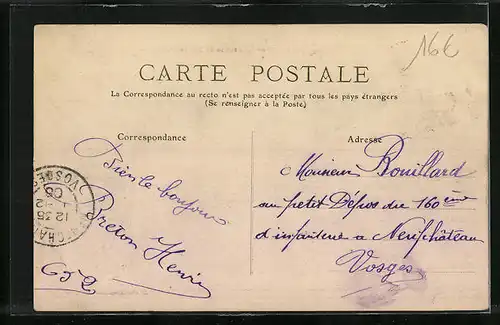 16€
CARTE POSTALE
La Correspondance au recto n'est pas acceptée par tous les pays étrangers
(Se renseigner à la Poste)
Correspondance
Adresse
Bien le bonjour
Breton Henri
Monsieur Rouillard
au petit Dépos du 160ème
d'infanterie a Neufchâteau
Vosges
VOSGES
12 35